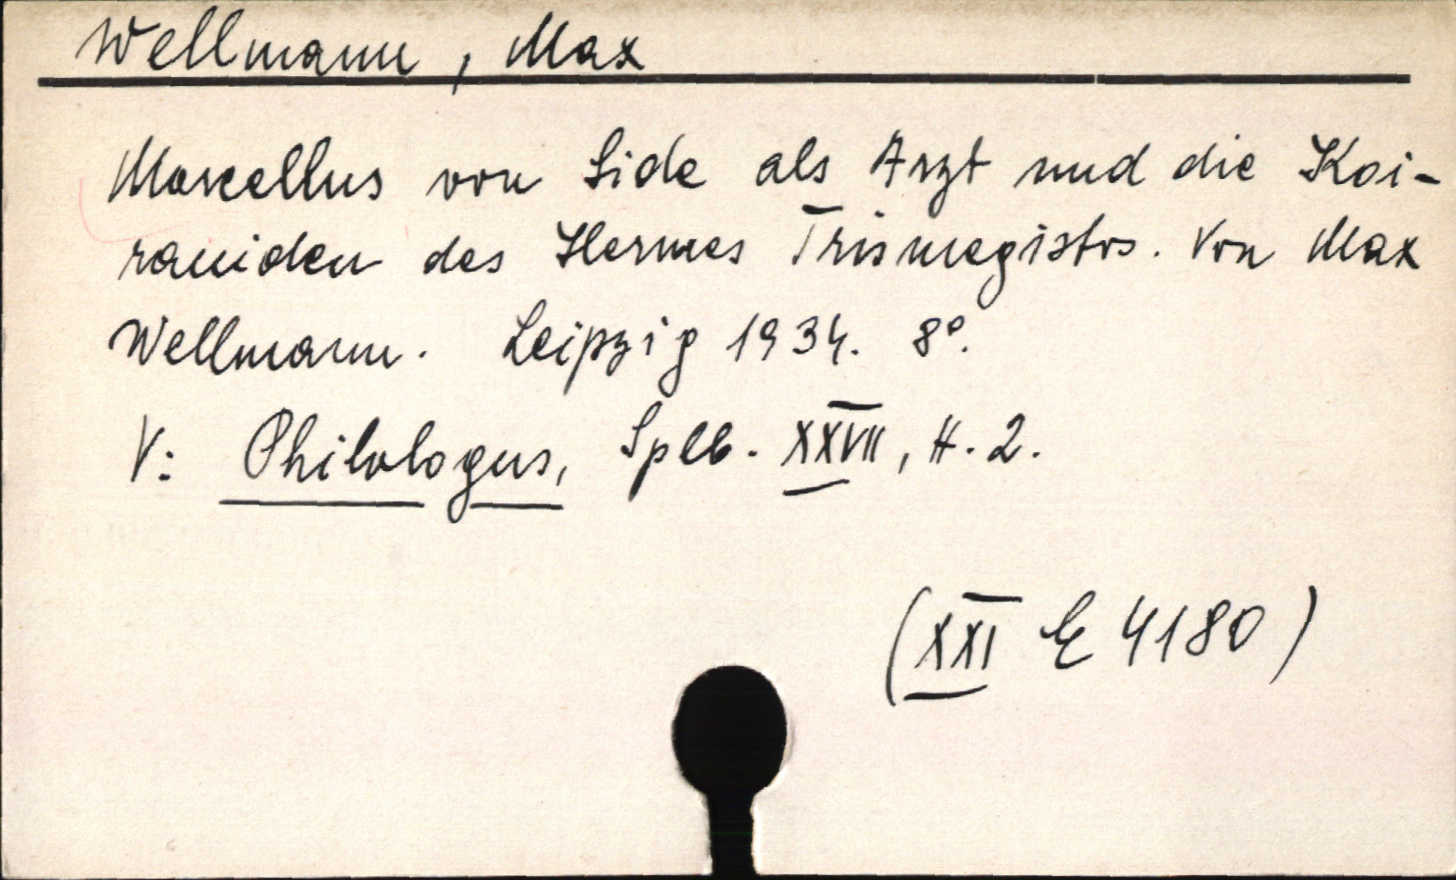 Wellmann, Max
Marcellus von Side als Arzt und die Koi-
raniden des Hermes Trismegistos. Von Max
Wellmann. Leipzig 1934. 8°.
V: Philologus, Splb. XXVII, H. 2.
(XXI E 4180)